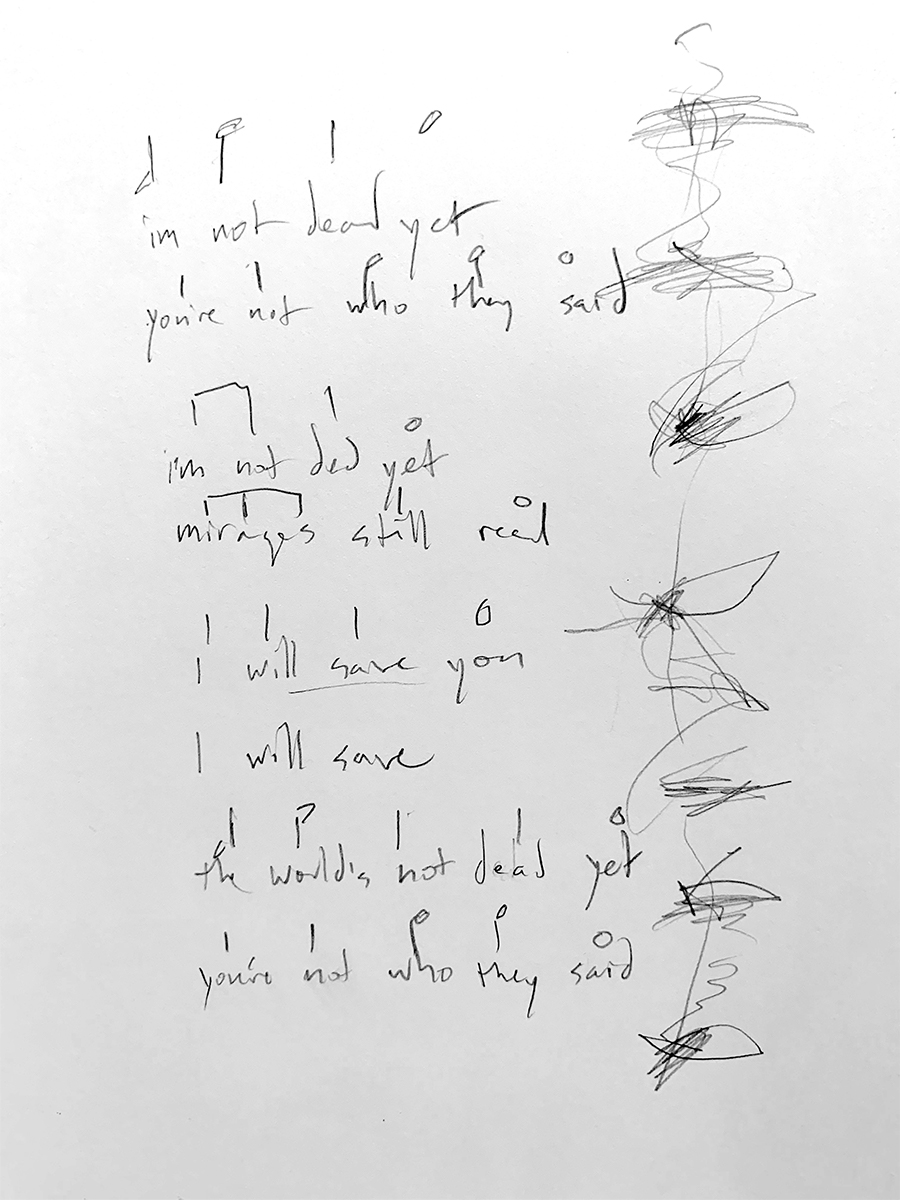 im not dead yet
you're not who they said
i'm not ded yet
mirages still real
I will save you
I will save
the world's not dead yet
you're not who they said